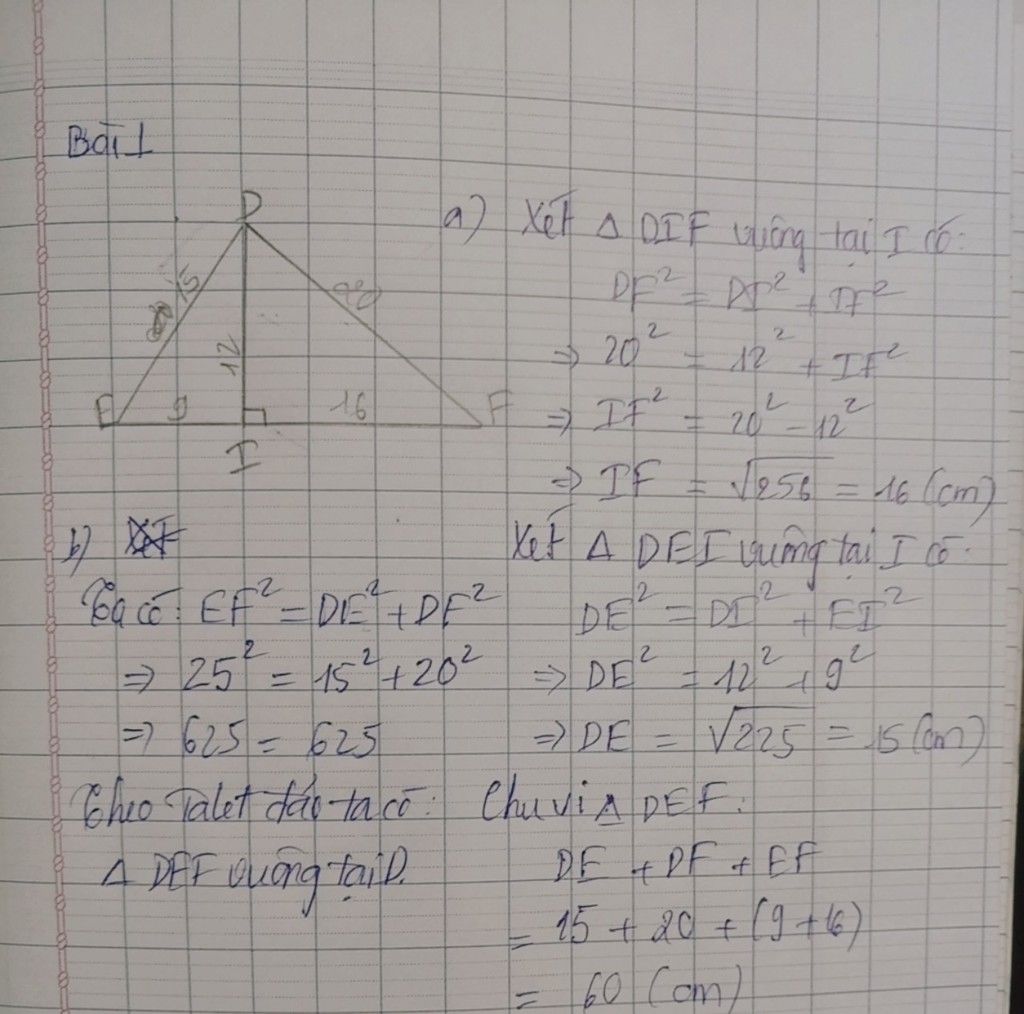 Bài 1
D
15
20
12
E
9
16
F
I
a) Xét Δ DIF vuông tại I có:
DF² = DI² + IF²
⇒ 20² = 12² + IF²
⇒ IF² = 20² - 12²
⇒ IF = √256 = 16 (cm)
Xét Δ DEI vuông tại I có:
DE² = DI² + EI²
⇒ DE² = 12² + 9²
⇒ DE = √225 = 15 (cm)
Chu vi Δ DEF:
DE + DF + EF
= 15 + 20 + (9 + 16)
= 60 (cm)
b)
Ta có: EF² = DE² + DF²
⇒ 25² = 15² + 20²
⇒ 625 = 625
Theo Talet đảo ta có:
Δ DEF vuông tại D.